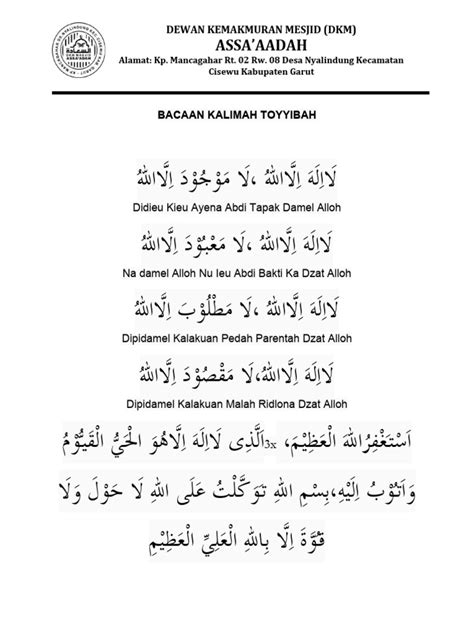 DEWAN KEMAKMURAN MESJID (DKM)
ASSA'AADAH
Alamat: Kp. Mancagahar Rt. 02 Rw. 08 Desa Nyalindung Kecamatan
Cisewu Kabupaten Garut
BACAAN KALIMAH TOYYIBAH
لَااِلَهَ اِلَّااللهُ ،لَا مَوْجُوْدَ اِلَّااللهُ
Didieu Kieu Ayena Abdi Tapak Damel Alloh
لَااِلَهَ اِلَّااللهُ ،لَا مَعْبُوْدَ اِلَّااللهُ
Na damel Alloh Nu Ieu Abdi Bakti Ka Dzat Alloh
لَااِلَهَ اِلَّااللهُ ،لَا مَطْلُوْبَ اِلَّااللهُ
Dipidamel Kalakuan Pedah Parentah Dzat Alloh
لَااِلَهَ اِلَّااللهُ،لَا مَقْصُوْدَ اِلَّااللهُ
Dipidamel Kalakuan Malah Ridlona Dzat Alloh
اَسْتَغْفِرُاللهَ الْعَظِيْمَ، 3x اَلَّذِى لَااِلَهَ اِلَّاهُوَ الْحَيُّ الْقَيُّوْمُ
وَاَتُوْبُ اِلَيْهِ،بِسْمِ اللهِ تَوَكَّلْتُ عَلَى اللهِ لَا حَوْلَ وَلَا
قُوَّةَ اِلَّا بِاللهِ الْعَلِيِّ الْعَظِيْمِ